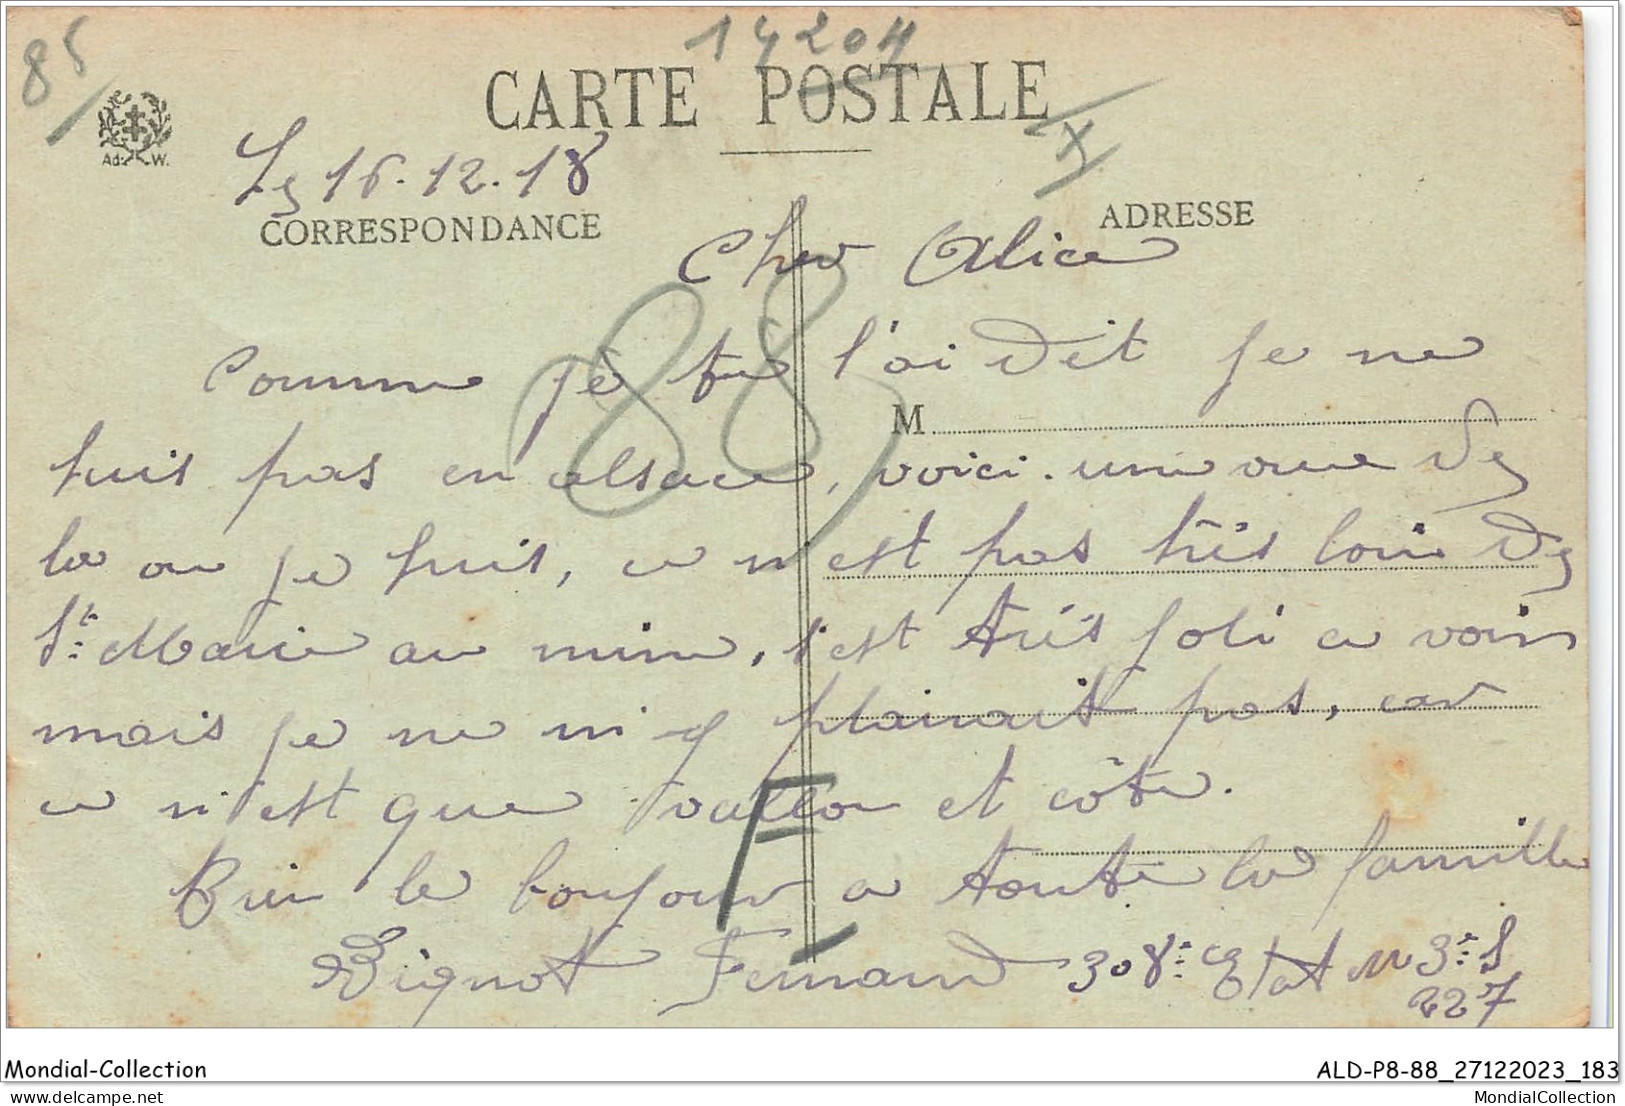 85
14204
CARTE POSTALE
Ad. W.
Le 16.12.18
CORRESPONDANCE
ADRESSE
Cher Alice
88
Comme je te l'ai dit je ne
M
suis pas en alsace, voici une vue de
la ou je suis, ce n'est pas très loin de
Ste Marie au mine, s'est très joli a voir
mais je ne m'y plairait pas, car
ce n'est que vallon et côte.
F
Bien le bonjour a toute la famille
Bignot Fernand 308e Etat M 3e S
227
Mondial-Collection
ALD-P8-88_27122023_183
delcampe.net
MondialCollection